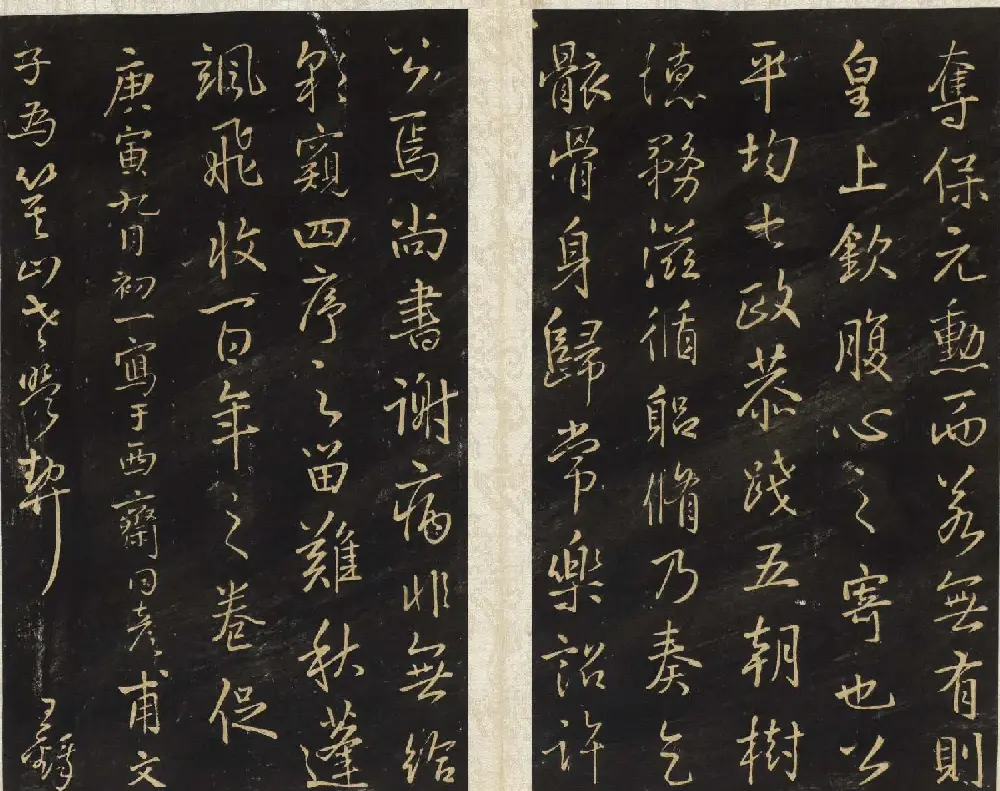 奪保元勳而若無有則
皇上欽腹心之寄也以
平均七政恭踐五朝樹
德務滋循躬脩乃奏乞
骸骨身歸常樂詔許
公焉尚書謝病非無給
窺四序之留難秋蓬
颯飛收一百年之卷促
庚寅九月初一寫于西齋同彥甫文
子為山老契 王鐸